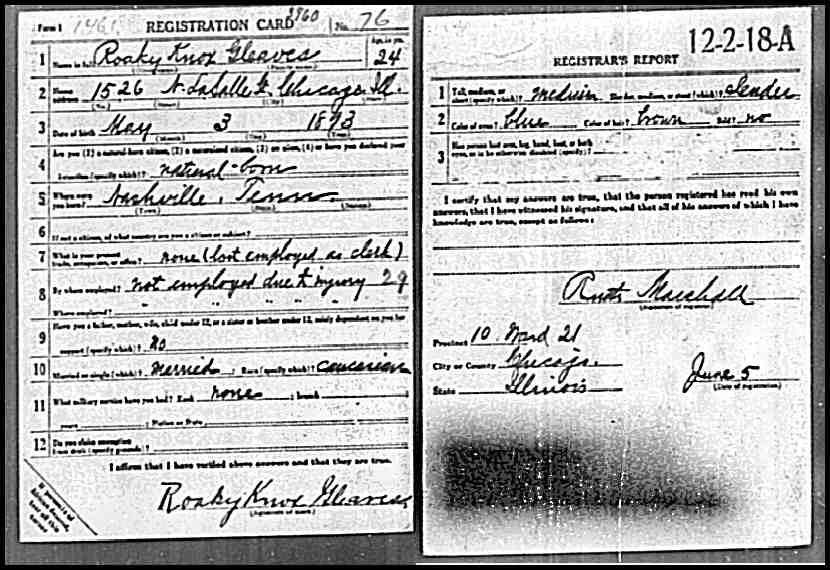 Form 1 1461 REGISTRATION CARD 3960 No. 76
1 Name in full Roaky Knox Gleaves Age, in yrs. 24
2 Home address 1526 N. LaSalle St. Chicago Ill.
(No.) (Street) (City) (State)
3 Date of birth May 3 1893
(Month) (Day) (Year)
4 Are you (1) a natural-born citizen, (2) a naturalized citizen, (3) an alien, (4) or have you declared your
intention (specify which)? natural-born
5 Where were you born? Nashville, Tenn.
(Town) (State) (Nation)
6 If not a citizen, of what country are you a citizen or subject?
7 What is your present trade, occupation, or office? none (last employed as clerk)
8 By whom employed? not employed due to injury 29
Where employed? " " " " "
9 Have you a father, mother, wife, child under 12, or a sister or brother under 12, solely dependent on you for
support (specify which)? No
10 Married or single (which)? Married Race (specify which)? Caucasian
11 What military service have you had? Rank none ; branch
years ; Nation or State
12 Do you claim exemption from draft (specify grounds)?
I affirm that I have verified above answers and that they are true.
Roaky Knox Gleaves
(Signature or mark)
If person is of African descent, tear off this corner
12-2-18-A
REGISTRAR'S REPORT
1 Tall, medium, or short (specify which)? medium Slender, medium, or stout (which)? Slender
2 Color of eyes? blue Color of hair? brown Bald? no
3 Has person lost arm, leg, hand, foot, or both
eyes, or is he otherwise disabled (specify)?
I certify that my answers are true, that the person registered has read his own
answers, that I have witnessed his signature, and that all of his answers of which I have
knowledge are true, except as follows:
Ruth Marshall
(Signature of registrar)
Precinct 10 Ward 21
City or County Chicago.
State Illinois
June 5
(Date of registration)